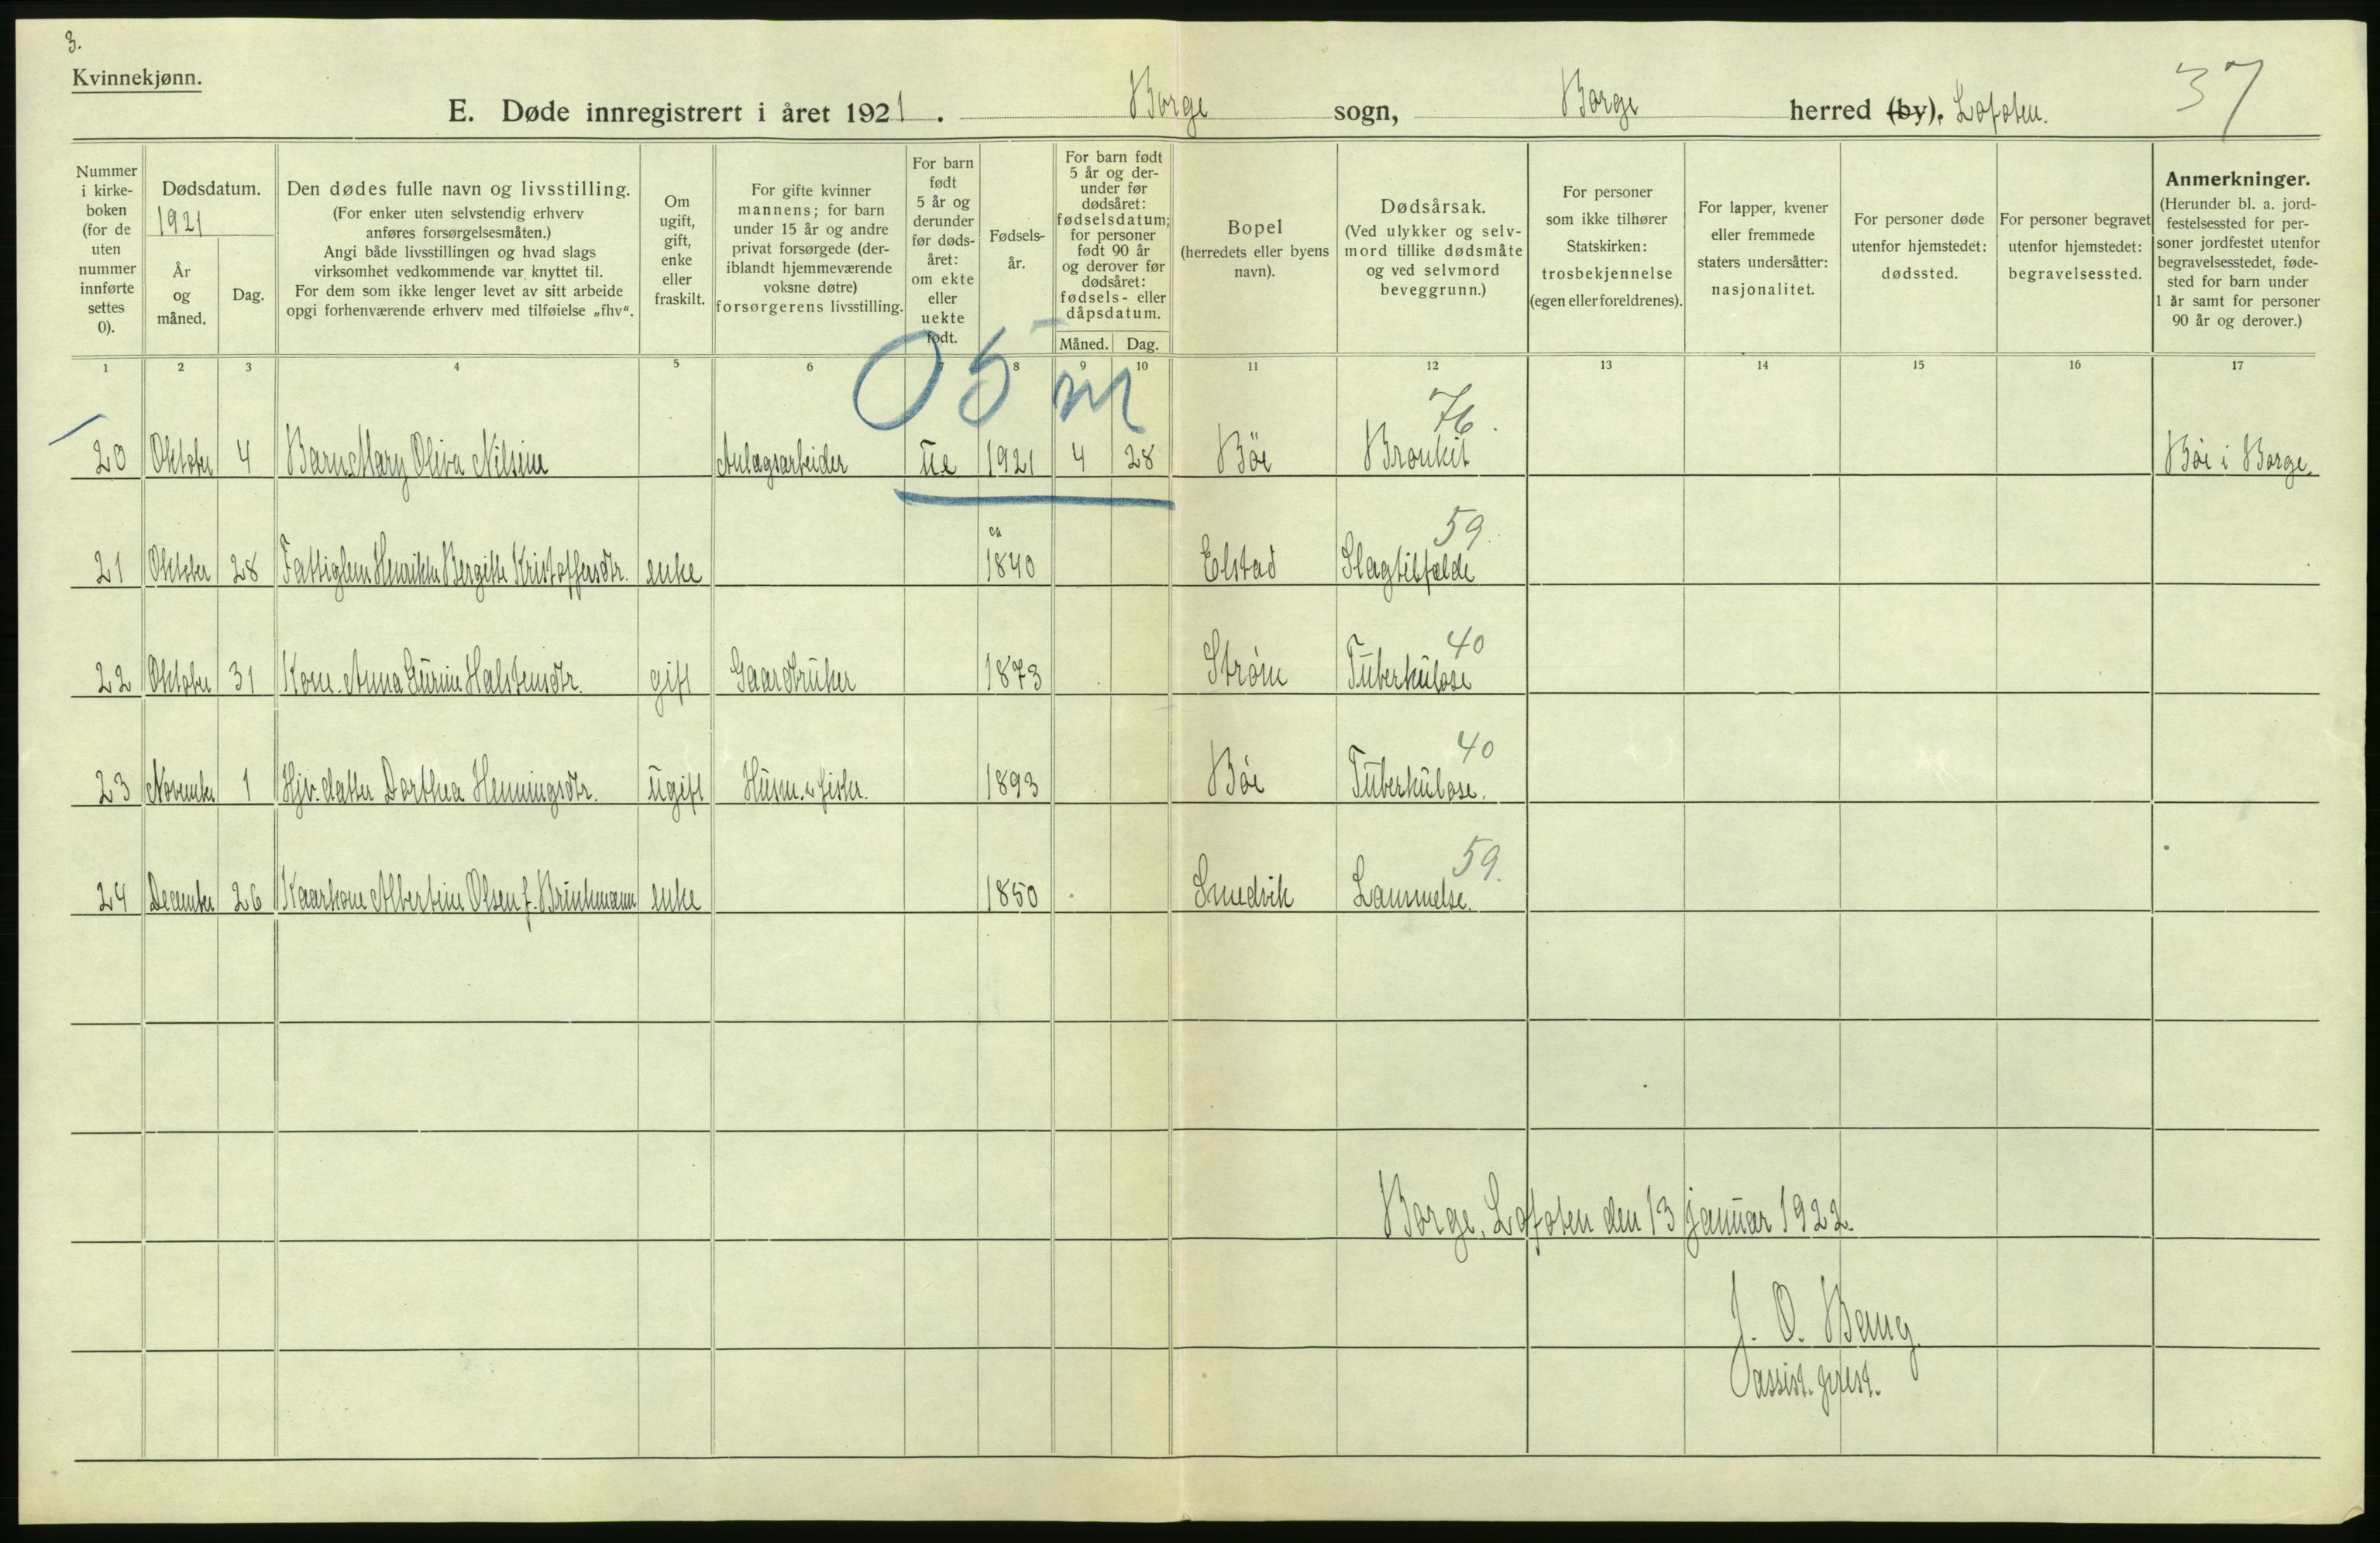 3.
Kvinnekjønn.
E. Døde innregistrert i året 1921. Borge sogn, Borge herred (by), Lofoten. 37
Nummer i kirke-boken (for de uten nummer innførte settes 0).
Dødsdatum.
1921
År og måned.
Dag.
Den dødes fulle navn og livsstilling.
(For enker uten selvstendig erhverv
anføres forsørgelsesmåten.)
Angi både livsstillingen og hvad slags
virksomhet vedkommende var knyttet til.
For dem som ikke lenger levet av sitt arbeide
opgi forhenværende erhverv med tilføielse „fhv“.
Om ugift, gift, enke eller fraskilt.
For gifte kvinner
mannens; for barn
under 15 år og andre
privat forsørgede (der-
iblandt hjemmeværende
voksne døtre)
forsørgerens livsstilling.
For barn født 5 år og derunder før døds-året: om ekte eller uekte født.
Fødsels-år.
For barn født
5 år og der-
under før
dødsåret:
fødselsdatum;
for personer
født 90 år
og derover før
dødsåret:
fødsels- eller
dåpsdatum.
Måned. Dag.
Bopel
(herredets eller byens
navn).
Dødsårsak.
(Ved ulykker og selv-
mord tillike dødsmåte
og ved selvmord
beveggrunn.)
For personer
som ikke tilhører
Statskirken:
trosbekjennelse
(egen eller foreldrenes).
For lapper, kvener
eller fremmede
staters undersåtter:
nasjonalitet.
For personer døde
utenfor hjemstedet:
dødssted.
For personer begravet
utenfor hjemstedet:
begravelsessted.
Anmerkninger.
(Herunder bl. a. jord-
festelsessted for per-
soner jordfestet utenfor
begravelsesstedet, føde-
sted for barn under
1 år samt for personer
90 år og derover.)
1 2 3 4 5 6 7 8 9 10 11 12 13 14 15 16 17
05 m
76.
20 Oktober 4 Barn Mary Oliva Nilsine Anlægsarbeider ue 1921 4 28 Böe Bronkit Böe i Borge.
ca 59.
21 Oktober 28 Fattiglem Henrikke Bergitte Kristoffersdtr. enke 1840 Elstad Slagtilfælde
40
22 Oktober 31 Kone Anna Gurine Halstensdtr. gift Gaardbruker 1873 Strøm Tuberkulose
40
23 November 1 Hjv. datter Dorthea Henningsdtr. ugift Husm. & fisker. 1893 Böe Tuberkulose.
59.
24 December 26 Kaarkone Albertine Olsen f. Brinkmann enke 1850 Smedvik Lammelse.
Borge, Lofoten den 13 januar 1922
J. O. Bang.
assist. prest.